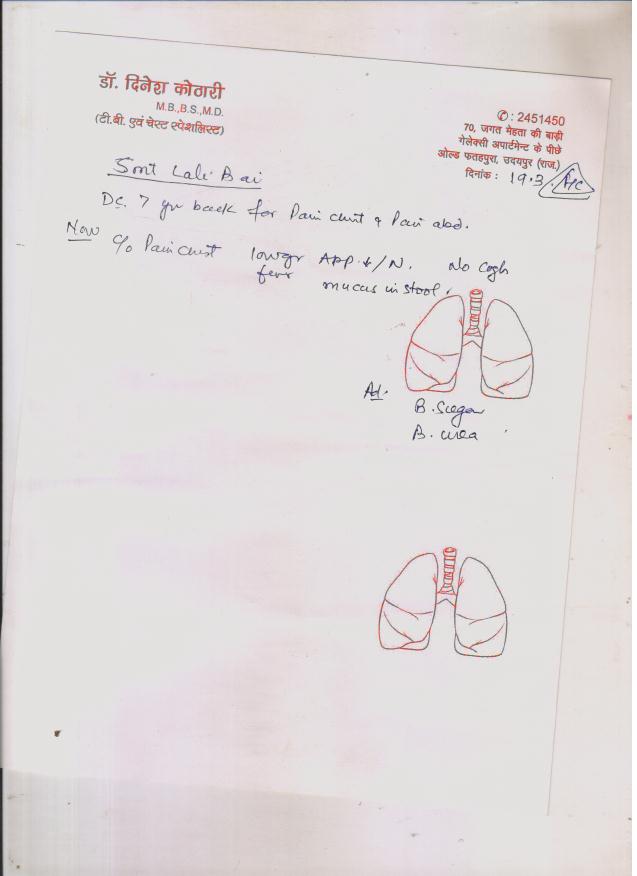 डॉ. दिनेश कोठारी
M.B.,B.S.,M.D.
(टी.बी. एवं चेस्ट स्पेशलिस्ट)
✆ : 2451450
70, जगत मेहता की बाड़ी
गेलेक्सी अपार्टमेन्ट के पीछे
ओल्ड फतहपुरा, उदयपुर (राज.)
दिनांक : 19.3.
Smt Lali Bai
7 yr back for Pain chest & Pain abd.
Now C/o Pain chest low gr App ↓/N. No cogh
fever mucus in stool.
Ad.
B. Sugar
B. urea